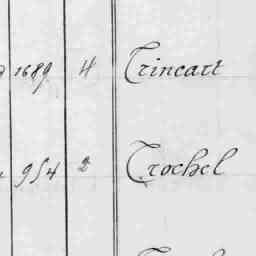 1689 4 Trincart
954 2 Trochel